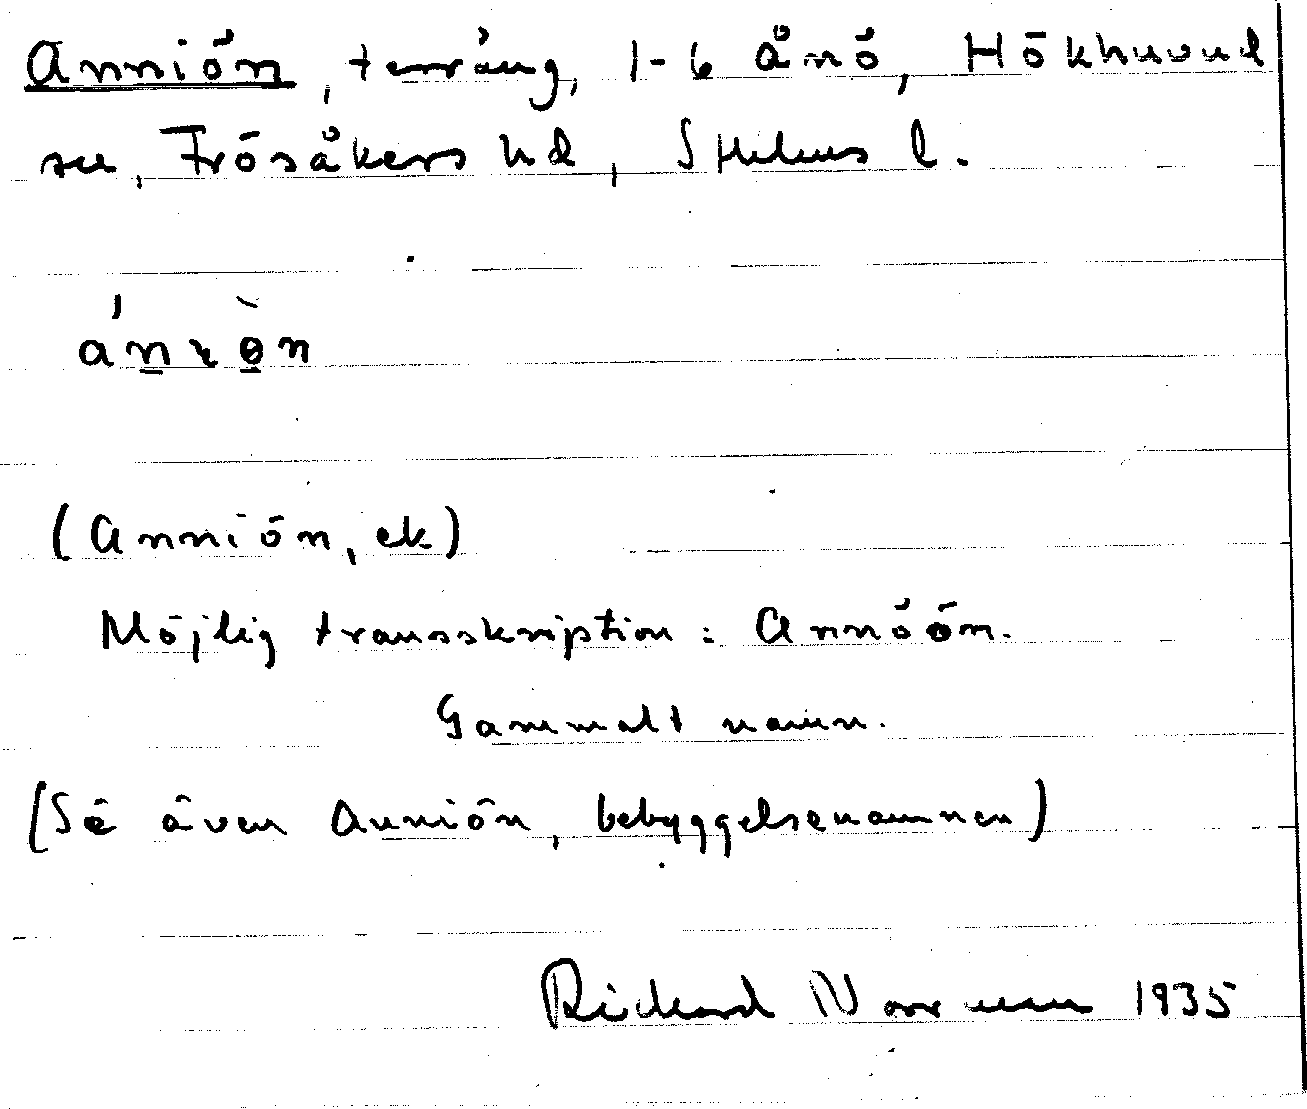 Anniön, terräng, 1-6 Ånö, Hökhuvud
sn, Frösåkers hd, Sthlms l.
(Anniön, ek)
Möjlig transskription: Annöön.
Gammalt namn.
(Se även Anniön, bebyggelsenamnen)
Rickard Norrman 1935